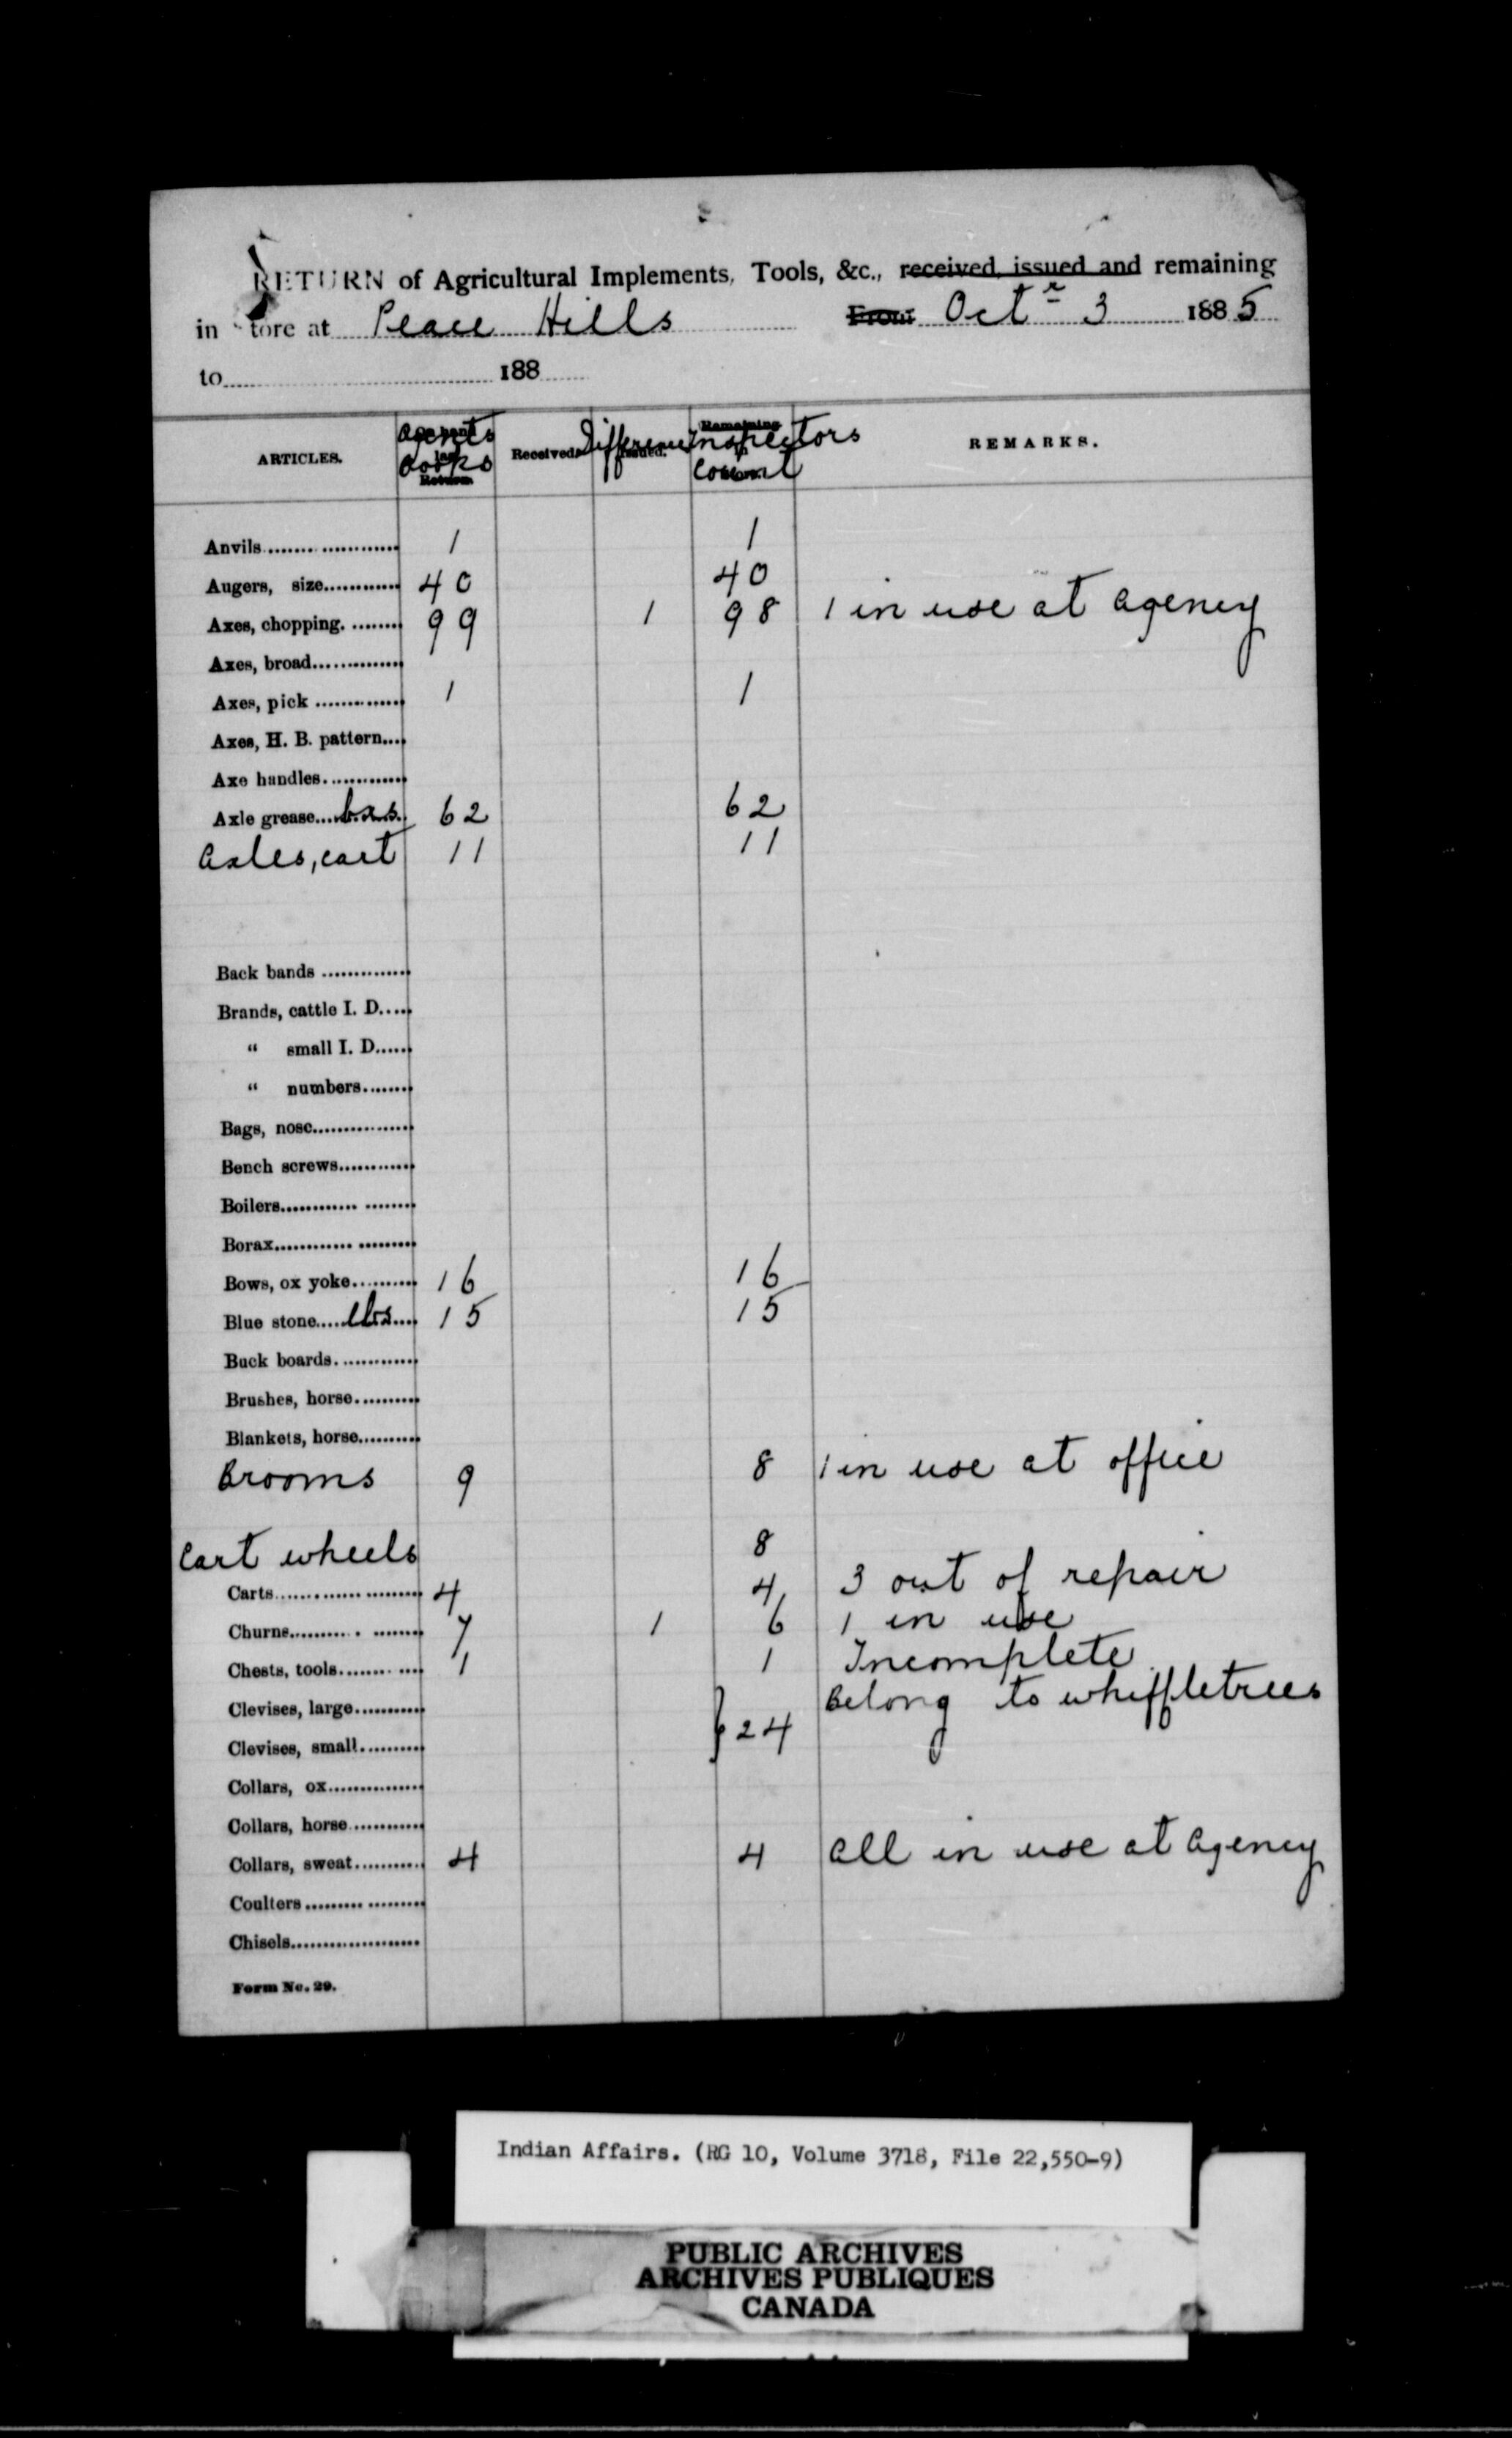 RETURN of Agricultural Implements, Tools, &c., received, issued and remaining
in Store at Peace Hills From Octr 3 1885
to 188
ARTICLES. Agents Books Return. Received. Difference Issued. Remaining Inspectors Count REMARKS.
Anvils 1 1
Augers, size 40 40
Axes, chopping. 99 1 98 1 in use at Agency
Axes, broad
Axes, pick 1 1
Axes, H. B. pattern
Axe handles
Axle grease bxs. 62 62
Axles, cart 11 11
Back bands
Brands, cattle I. D.
" small I. D.
" numbers
Bags, nose
Bench screws
Boilers
Borax
Bows, ox yoke 16 16
Blue stone lbs 15 15
Buck boards
Brushes, horse
Blankets, horse
Brooms 9 8 1 in use at office
Cart wheels 8
Carts 4 4 3 out of repair
Churns 7 1 6 1 in use
Chests, tools 1 1 Incomplete
Clevises, large Belong to whiffletrees
Clevises, small } 24
Collars, ox
Collars, horse
Collars, sweat 4 4 All in use at Agency
Coulters
Chisels
Form No. 29.
Indian Affairs. (RG 10, Volume 3718, File 22,550-9)
PUBLIC ARCHIVES
ARCHIVES PUBLIQUES
CANADA